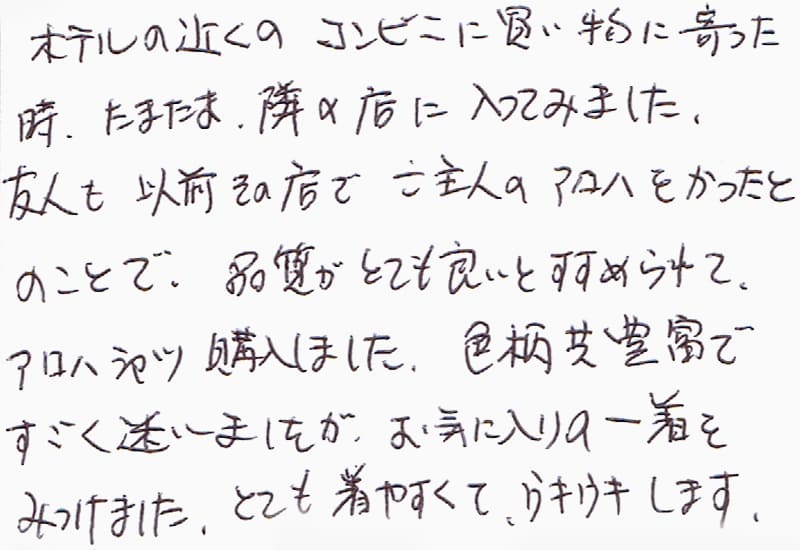 ホテルの近くの コンビニに買い物に寄った
時、たまたま、隣の店に入ってみました。
友人も以前その店でご主人のアロハをかったと
のことで、品質がとても良いとすすめられて、
アロハシャツ購入しました。色柄共豊富で
すごく迷いましたが、お気に入りの一着を
みつけました。とても着やすくて、ウキウキします。